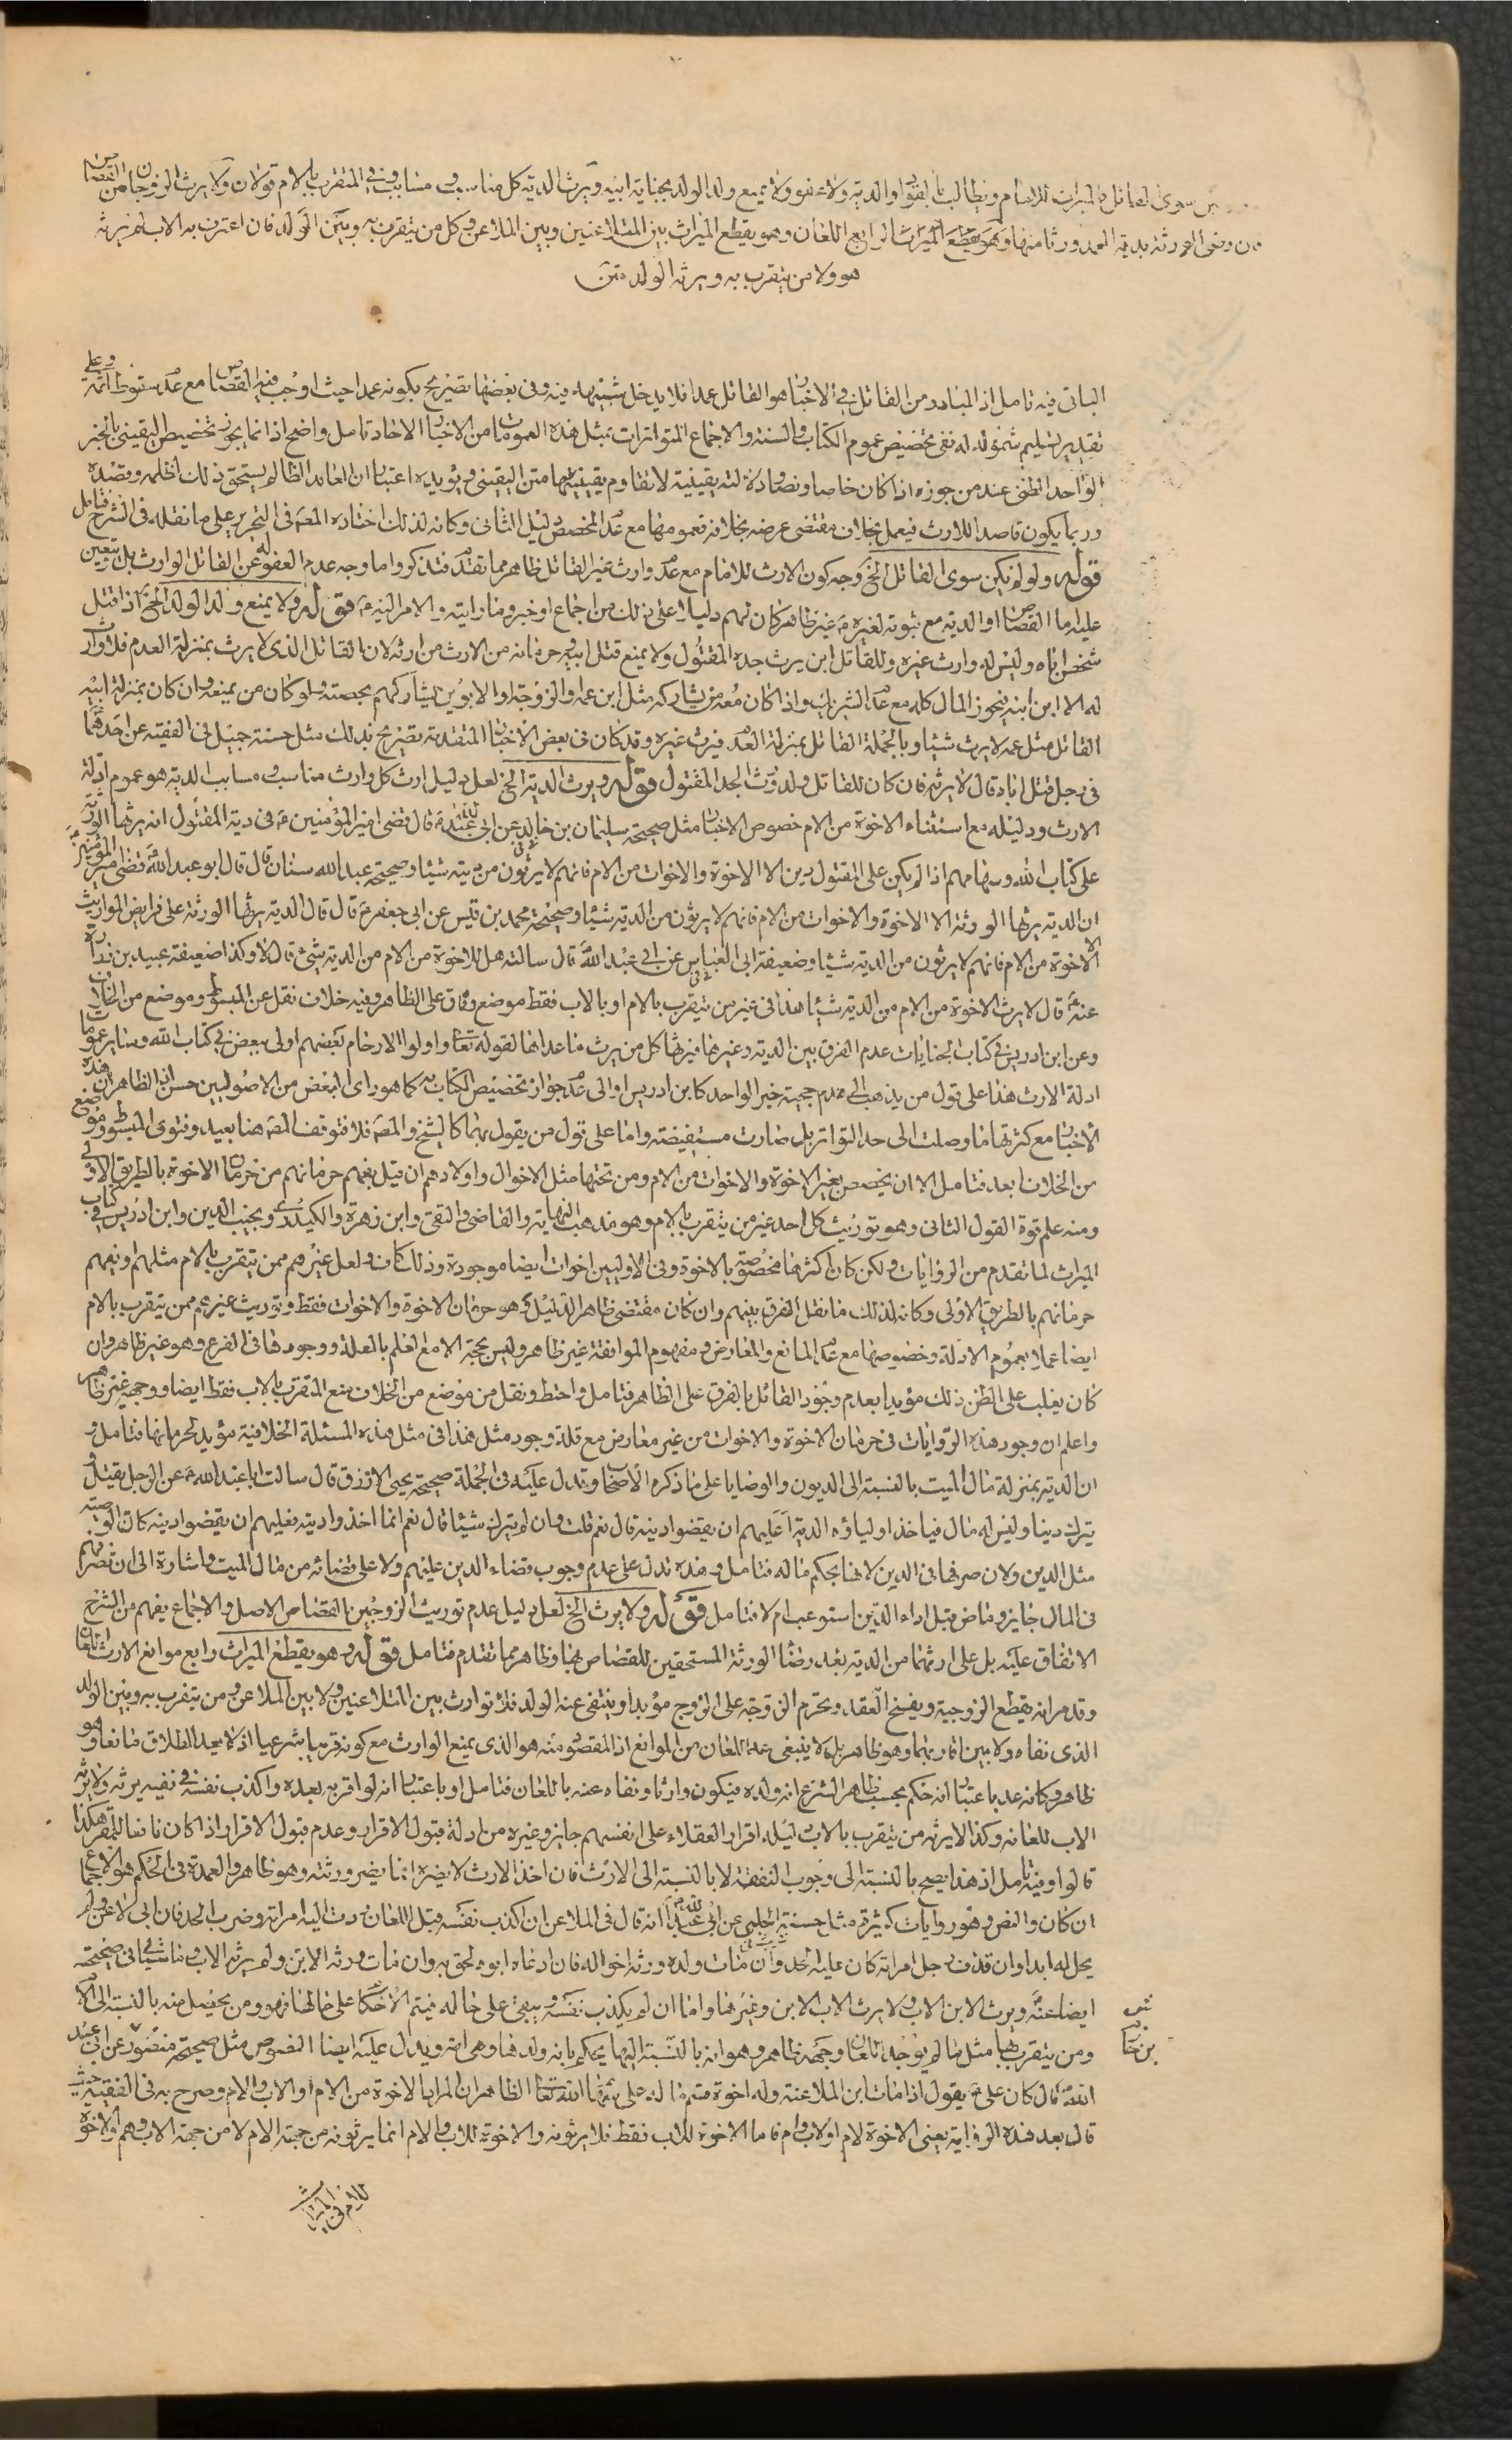 سوى القاتل فالميراث للامام ويطالب بالقود او الدية ولا عفو ولا يمنع ولد الولد بجناية ابيه ويرث الدية كل مناسب ومسابب وفي المتقرب بالام قولان ولا يرث الزوجان من القصاص
فان رضى الورثة بدية العمد ورثا منها وهو يقطع الميراث الرابع اللعان وهو يقطع الميراث بين المتلاعنين وبين الملاعن وكل من يتقرب به وبين الولد فان اعترف به الاب لم يرثه
هو ولا من يتقرب به ويرثه الولد متن
الباقي فيه تامل اذ المتبادر من القاتل في الاخبار هو القاتل عمدا فلا يدخل شبيهه فيه وفي بعضها تصريح بكونه عمدا حيث اوجب فيه القصاص مع عدم سقوط ارثه وعلى
تقدير تسليم شموله له نفى تخصيص عموم الكتاب والسنة والاجماع المتواترات بمثل هذه العمومات من الاخبار الاحاد تامل واضح اذ انما يجوز تخصيص اليقيني بالخبر
الواحد الظني عند من جوزه اذا كان خاصا ونصا ودلالته يقينية لا تقاوم يقينيتها متن اليقيني ويؤيده اعتبار ان العامد الظالم يستحق ذلك لظلمه وقصده
وربما يكون قاصدا للارث فيعمل بخلاف مقتضى غرضه بخلافه فعمومها مع عدم المخصص دليل الثاني وكانه لذلك اختاره المصـ في التحرير على ما نقله في الشرح فتامل
قوله ولو لم يكن سوى القاتل الخ وجه كون الارث للامام مع عدم وارث غير القاتل ظاهر مما تقدم فتذكر واما وجه عدم العفو له عن القاتل الوارث بل تعين
عليه اما القصاص او الدية مع ثبوته لغيره فـ غير ظاهر كان لهم دليلا على ذلك من اجماع او خبر وما رايته والامر اليهم قوله ولا يمنع ولد الولد الخ اذا قتل
شخص اباه وليس له وارث غيره وللقاتل ابن يرث جده المقتول ولا يمنع قتل ابيه وحرمانه من الارث من ارثه لان القاتل الذي لا يرث بمنزلة العدم فلا وارث
له الا ابن ابنه فيحوز المال كله مع عدم الشريك واذا كان معه من يشاركه مثل ابن عمه والزوجة او الابوين يشاركهم بحصته ولو كان من يمنعه وان كان بمنزلة ابيه
القاتل مثل عمه لا يرث شيئا وبالجملة القاتل بمنزلة العدم فيرث غيره وقد كان في بعض الاخبار المتقدمة تصريح بذلك مثل حسنة جميل في الفقيه عن احدهما
في رجل قتل اباه قال لا يرثه فان كان للقاتل ولد ورث الجد المقتول قوله ويرث الدية الخ لعل دليل ارث كل وارث مناسب ومسابب الدية هو عموم ادلة
الارث ودليله مع استثناء الاخوة من الام خصوص الاخبار مثل صحيحة سليمان بن خالد عن ابي عبد الله ع قال قضى امير المؤمنين ع في دية المقتول انه يرثها الورثة
على كتاب الله وسهامهم اذا لم يكن على المقتول دين الا الاخوة والاخوات من الام فانهم لا يرثون من ديته شيئا وصحيحة عبد الله سنان قال قال ابو عبد الله قضى امير المؤمنين
ان الدية يرثها الورثة الا الاخوة والاخوات من الام فانهم لا يرثون من الدية شيئا وصحيحة محمد بن قيس عن ابي جعفر ع قال قال الدية يرثها الورثة على فرايض المواريث
الا الاخوة من الام فانهم لا يرثون من الدية شيئا وضعيفة ابي العباس عن ابي عبد الله قال سالته هل للاخوة من الام من الدية شيئ قال لا وكذا ضعيفة عبيد بن زرارة
عنه قال لا يرث الاخوة من الام من الدية شيئا هذا في غير من يتقرب بالام او بالاب فقط موضع وفاق على الظاهر وفيه خلاف نقل عن المبسوط وموضع من الخلاف
وعن ابن ادريس في كتاب الجنايات عدم الفرق بين الدية وغيرها فيرثها كل من يرث ما عداها لقوله تعالى واولوا الارحام بعضهم اولى ببعض في كتاب الله وساير عموما
ادلة الارث هذا على قول من يذهب الى عدم حجية خبر الواحد كابن ادريس او الى عدم جواز تخصيص الكتاب به كما هو راى البعض من الاصوليين حسن اذ الظاهر ان هذه
الاخبار مع كثرتها ما وصلت الى حد التواتر بل صارت مستفيضة واما على قول من يقول بهما كالشيخ والمصـ فلا فتوقف المصـ هنا بعيد وفتوى المبسوط وموضع
من الخلاف ابعد فتامل الا ان يخصص بغير الاخوة والاخوات من الام ومن تحتها مثل الاخوال واولادهم ان قيل بفهم حرمانهم من حرمان الاخوة بالطريق الاولى
ومنه علم قوة القول الثاني وهو توريث كل احد غير من يتقرب بالام وهو مذهب النهاية والقاضي والتقي وابن زهرة والكيدري ونجيب الدين وابن ادريس في كتاب
الميراث لما تقدم من الروايات ولكن كان اكثرها مخصوصة بالاخوة وفي الاوليين اخوات ايضا موجودة وذلك كاف ولعل غيرهم ممن يتقرب بالام مثلهم او يفهم
حرمانهم بالطريق الاولى وكانه لذلك ما نقل الفرق بينهم وان كان مقتضى ظاهر الدليل هو حرمان الاخوة والاخوات فقط وتوريث غيرهم ممن يتقرب بالام
ايضا عملا بعموم الادلة وخصوصها مع عدم المانع والمعارض ومفهوم الموافقة غير ظاهر وليس بحجة الا مع العلم بالعلة ووجودها في الفرع وهو غير ظاهر وان
كان يغلب على الظن ذلك مؤيدا بعدم وجود القائل بالفرق على الظاهر فتامل واحتط ونقل من موضع من الخلاف منع المتقرب بالاب فقط ايضا ووجهه غير ظاهر
واعلم ان وجود هذه الروايات في حرمان الاخوة والاخوات من غير معارض مع قلة وجود مثل هذا في مثل هذه المسئلة الخلافية مؤيد لحرمانها فتامل و
ان الدية بمنزلة مال الميت بالنسبة الى الديون والوصايا على ما ذكره الاصحاب وتدل عليه في الجملة صحيحة يحيى الازرق قال سالت ابا عبد الله ع عن الرجل يقتل و
يترك دينا وليس له مال فياخذ اولياؤه الدية اعليهم ان يقضوا دينه قال نعم قلت وان لم يترك شيئا قال نعم انما اخذوا ديته فعليهم ان يقضوا دينه كان الوصية
مثل الدين ولان صرفها في الدين لانها بحكم ماله فتامل وهذه تدل على عدم وجوب قضاء الدين عليهم ولا على قضائه من مال الميت واشارة الى ان تصرفهم
في المال جايز وماض قبل اداء الدين استوعب ام لا فتامل قوله ولا يرث الخ لعل دليل عدم توريث الزوجين القصاص الاصل والاجماع يفهم من الشرح
الاتفاق عليه بل على ارثهما من الدية بعد رضا الورثة المستحقين للقصاص بها وظاهر مما تقدم فتامل قوله وهو يقطع الميراث رابع موانع الارث اللعان
وقد مر انه يقطع الزوجية ويفسخ العقد وتحرم الزوجة على الزوج مؤبدا وينتفي عنه الولد فلا توارث بين المتلاعنين ولا بين الملاعن ومن يتقرب به وبين الولد
الذي نفاه ولا بين اقاربهما وهو ظاهر بل لا ينبغي عد اللعان من الموانع اذ المقصود منه هو الذي يمنع الوارث مع كونه قريبا شرعيا اذ لا يعد الطلاق مانعا وهو
ظاهر وكانه عد باعتبار انه حكم بحسب ظاهر الشرع انه ولده فيكون وارثا ونفاه عنه باللعان فتامل او باعتبار انه لو اقر به بعده واكذب نفسه في نفيه يرثه ولا يرثه
الاب للعانه وكذا لا يرثه من يتقرب بالاب دليله اقرار العقلاء على انفسهم جايز وغيره من ادلة قبول الاقرار وعدم قبول الاقرار اذا كان نافعا للمقر هكذا
قالوا وفيه تامل اذ هذا يصح بالنسبة الى وجوب النفقة لا بالنسبة الى الارث فان اخذ الارث لا يضره انما يضر ورثته وهو ظاهر والعمدة في الحكم هو الاجماع
ان كان والنص وهو روايات كثيرة مثل حسنة الحلبي عن ابي عبد الله انه قال في الملاعن ان اكذب نفسه قبل اللعان ردت اليه امراته وضرب الحد فان ابى لاعن ولم
يحل له ابدا وان قذف رجل امراته كان عليه الحد وان مات ولده ورثه اخواله فان ادعاه ابوه لحق به وان مات ورثه الابن ولم يرثه الاب وما في صحيحته
ايضا عنه ويرث الابن الاب ولا يرث الاب الابن وغيرها واما ان لم يكذب نفسه ويبقى على حاله فيتم الاحكام على حالها فهو ومن يحصل منه بالنسبة الى الام
ومن يتقرب بها مثل ما لم يوجد اللعان وجهه ظاهر وهو انه بالنسبة اليها يحكم بانه ولدها وهي امه ويدل عليه ايضا النصوص مثل صحيحة منصور عن ابي عبد
الله قال كان علي ع يقول اذا مات ابن الملاعنة وله اخوة قسم ماله على سهام الله تعالى الظاهر ان المراد بها الاخوة من الام او الاب والام وصرح به في الفقيه حيث
قال بعد هذه الرواية يعني الاخوة لام او لاب وام فاما الاخوة للاب فقط فلا يرثونه والاخوة للاب والام انما يرثونه من جهة الام لا من جهة الاب وهم والاخوة
للام في الميراث